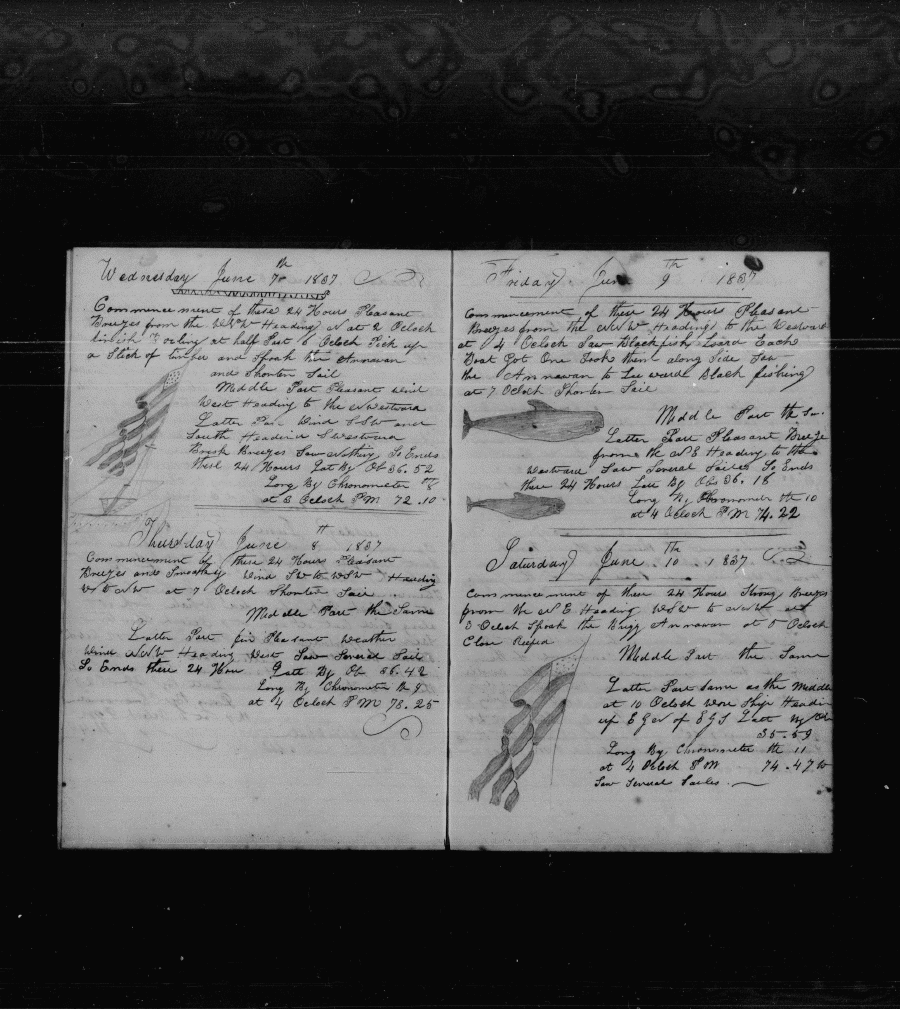 Wednesday June 7th 1837
Commencement of these 24 Hours Pleasant
Breezes from the WSW Heading N at 2 Ocloch
at half Past 6 Ocloch Pick up
a Stick of timber and Spoak Annawan
and Shorten Sail
Middle Part Pleasant wind
West Heading to the Nwestward
Latter Part Wind SSW and
South Heading Swestward
Brisk Breezes Saw nothing So Ends
these 24 Hours Lat By Ob 36.52
Long By Chronometer 8
at 3 Ocloch PM 72.10
Thursday June 8th 1837
Commencement of these 24 Hours Pleasant
Breezes and Smooth Wind SW to WSW Heading
W to NW at 7 Ocloch Shorten Sail
Middle Part the Same
Latter Part fin Pleasant Weather
Wind NNW Heading West Saw Several Sail
So Ends these 24 Hou Latt By Ob 36.42
Long By Chronometer the 9
at 4 Ocloch PM 73.25
Friday June 9th 1837
Commencement of these 24 Hours Pleasant
Breezes from the NNW Heading to the Westward
at 4 Ocloch Saw Blackfish Loard Each
Boat Got One Took them along Side Saw
the Annawan to Leeward Black fishing
at 7 Ocloch Shorten Sail
Middle Part the Sa
Latter Part Pleasant Breeze
from the NE Heading to the
Westward Saw Several Sailes So Ends
these 24 Hours Lat By Obs 36.18
Long By Chronometer the 10
at 4 Ocloch PM 74.22
Saturday June 10th 1837
Commencement of these 24 Hours Strong Breezes
from the NE Heading WSW to NNW at
3 Ocloch Spoak the Brigg Annawan at 5 Ocloch
Close Reefed
Middle Part the Same
Latter Part Same as the Middle
at 10 Ocloch Wore Ship Headin
up E Latt By Ob
35.59
Long By Chronometer the 11
at 4 Ocloch PM 74.47 W
Saw Several Sailes